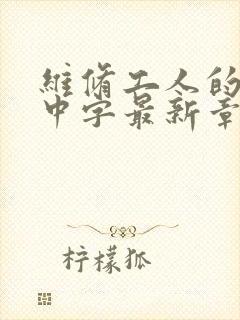 維脩工人的
中字最新章
柠檬狐